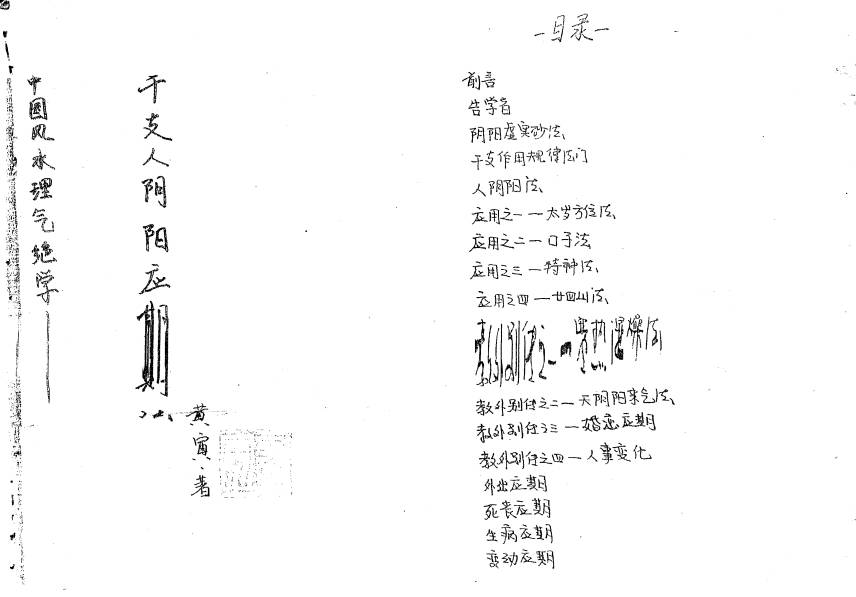 中国风水理气绝学——
干支人阴阳应期
法
黄寅·著
—目录—
前言
告学者
阴阳虚实砂法
干支作用规律法门
人阴阳法
应用之一—太岁方位法
应用之二—口子法
应用之三—特神法
应用之四—廿四山法
教外别传之一—寒热湿燥法
教外别传之二—天阴阳来气法
教外别传之三—婚恋应期
教外别传之四—人事变化
外出应期
死丧应期
生病应期
变动应期